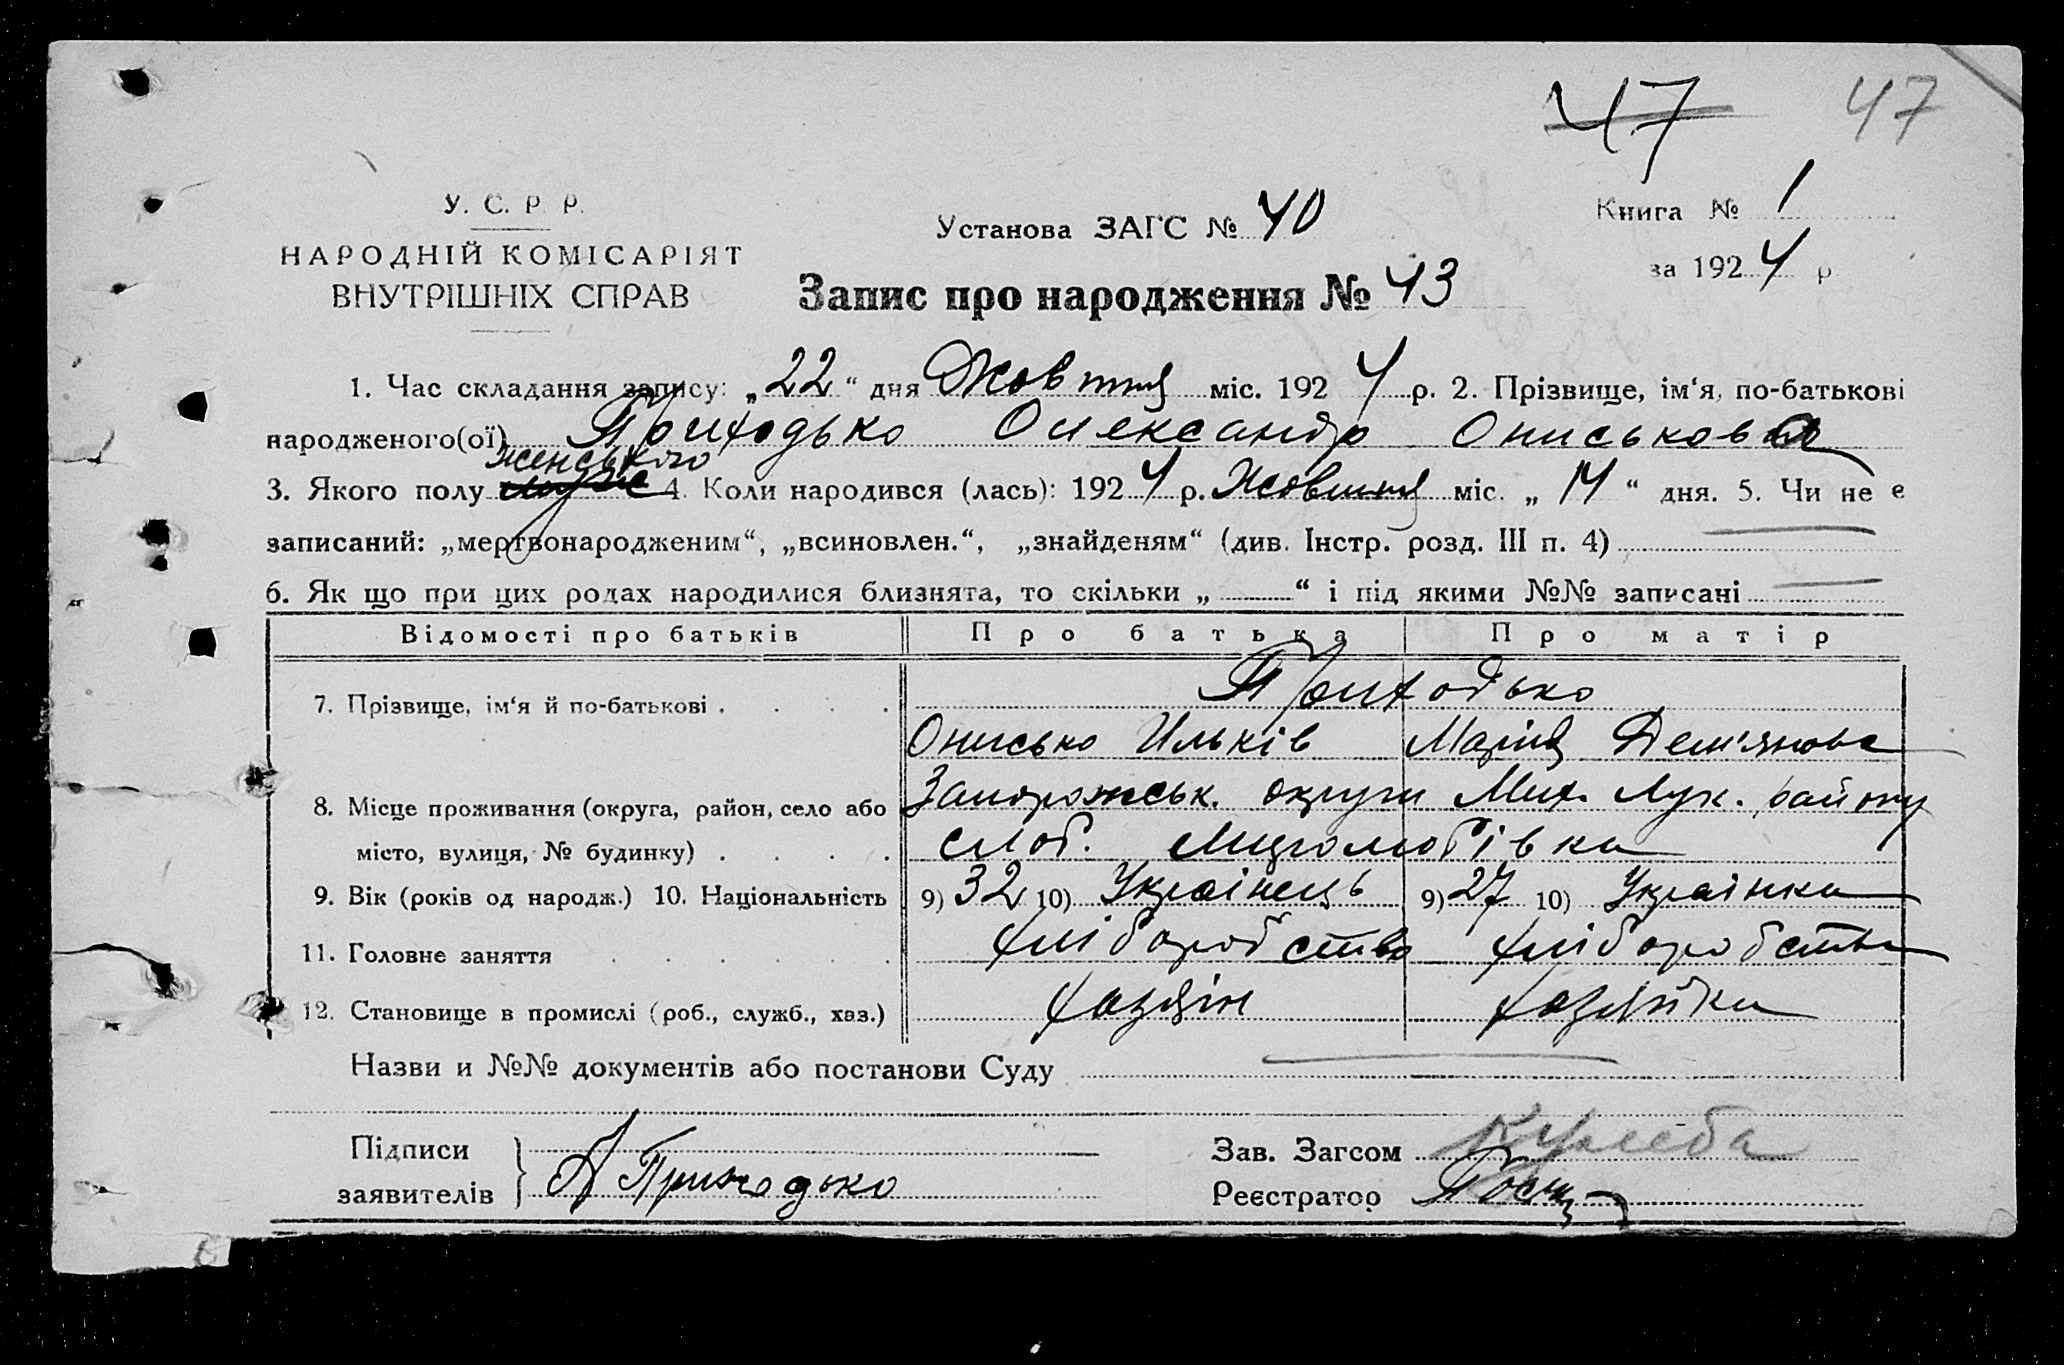 47 47
У. С. Р. Р.
НАРОДНІЙ КОМІСАРІЯТ
ВНУТРІШНІХ СПРАВ
Установа ЗАГС № 40
Книга № 1
за 1924 р
Запис про народження № 43
1. Час складання запису: „22“ дня Жовтня міс. 1924 р. 2. Прізвище, ім‘я, по-батькові
народженого(ої) Приходько Олександра Ониськова
женського
3. Якого полу 4. Коли народився (лась): 1924 р. Жовтня міс. „14“ дня. 5. Чи не є
записаний: „мертвонародженим“, „всиновлен.“, „знайденям“ (див. Інстр. розд. III п. 4)
6. Як що при цих родах народилися близнята, то скільки „ “ і під якими №№ записані
Відомості про батьків Про батька Про матір
7. Прізвище, ім‘я й по-батькові . . . . Приходько
Онисько Ильків Марія Дем'янова
8. Місце проживання (округа, район, село або Запорожськ. округи Мих. Лук. району
місто, вулиця, № будинку) . . . . слоб.
9. Вік (років од народж.) 10. Національність 9) 32 10) Українець 9) 27 10) Українка
11. Головне заняття . . . . . . хліборобство хліборобства
12. Становище в промислі (роб., служб., хаз.) хазяїн хазяйка
Назви и №№ документів або постанови Суду
Підписи
заявителів } А Приходько
Зав. Загсом Кулеба
Реєстратор